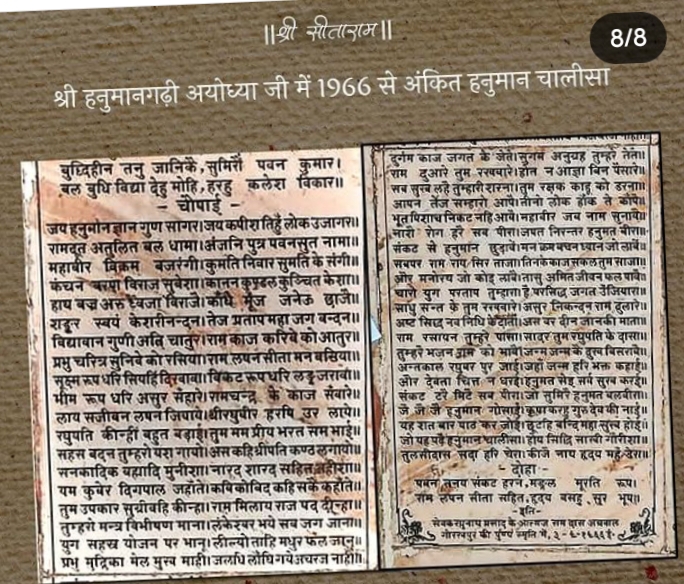 ॥श्री सीताराम॥
8/8
श्री हनुमानगढ़ी अयोध्या जी में 1966 से अंकित हनुमान चालीसा
बुध्दिहीन तनु जानिकै,सुमिरौं पवन कुमार।
बल बुधि विद्या देहु मोहि,हरहु कलेश विकार॥
- चौपाई -
जय हनुमान ज्ञान गुण सागर।जय कपीश तिहुँ लोक उजागर॥
रामदूत अतुलित बल धामा।अंजनि पुत्र पवनसुत नामा॥
महाबीर विक्रम बजरंगी।कुमति निवार सुमति के संगी॥
कंचन बरण विराज सुबेशा।कानन कुण्डल कुञ्चित केशा॥
हाथ बज्र अरु ध्वजा विराजे।काँधे मूँज जनेऊ छाजै॥
शङ्कर स्वयं केशरीनन्दन।तेज प्रताप महा जग बन्दन॥
विद्यावान गुणी अति चातुर।राम काज करिबे को आतुर॥
प्रभु चरित्र सुनिबे को रसिया।राम लषन सीता मन बसिया॥
सूक्ष्म रूप धरि सियहिं दिखावा।विकट रूप धरि लङ्क जरावा॥
भीम रूप धरि असुर संहारे।रामचन्द्र के काज संवारे॥
लाय सजीवन लषन जियाये।श्रीरघुवीर हरषि उर लाये॥
रघुपति कीन्हीं बहुत बड़ाई।तुम मम प्रीय भरत सम भाई॥
सहस बदन तुम्हरो यश गायो।अस कहि श्रीपति कण्ठ लगायो॥
सनकादिक ब्रह्मादि मुनीशा।नारद शारद सहित अहीशा॥
यम कुबेर दिगपाल जहाँते।कवि कोविद कहि सकै कहाँते॥
तुम उपकार सुग्रीवहि कीन्हा।राम मिलाय राज पद दीन्हा॥
तुम्हरो मन्त्र विभीषण माना।लंकेश्वर भये सब जग जाना॥
युग सहस्र योजन पर भानू।लील्यो ताहि मधुर फल जानू॥
प्रभु मुद्रिका मेल मुख माहीं।जलधि लाँघि गये अचरज नाहीं॥
दुर्गम काज जगत के जेते।सुगम अनुग्रह तुम्हरे तेते॥
राम दुआरे तुम रखवारे।होत न आज्ञा बिन पैसारे॥
सब सुख लहे तुम्हारी शरना।तुम रक्षक काहू को डरना॥
आपन तेज सम्हारो आपे।तीनों लोक हाँक ते काँपे॥
भूत पिशाच निकट नहिं आवै।महाबीर जब नाम सुनावै॥
नाशै रोग हरै सब पीरा।जपत निरन्तर हनुमत बीरा॥
संकट से हनुमान छुड़ावे।मन क्रम बचन ध्यान जो लावै॥
सबपर राम राय सिर ताजा।तिनके काज सकल तुम साजा॥
और मनोरथ जो कोइ लावै।तासु अमित जीवन फल पावै॥
चारो युग परताप तुम्हारा।है परसिद्ध जगत उजियारा॥
साधु सन्त के तुम रखवारे।असुर निकन्दन राम दुलारे॥
अष्ट सिद्धि नव निधि के दाता।अस बर दीन जानकी माता॥
राम रसायन तुम्हरे पासा।सादर तुम रघुपति के दासा॥
तुम्हरे भजन राम को भावै।जन्म जन्म के दुख बिसरावै॥
अन्तकाल रघुबर पुर जाई।जहाँ जन्म हरि भक्त कहाई॥
और देवता चित्त न धरई।हनुमत सेइ सर्व सुख करई॥
संकट टरै मिटै सब पीरा।जो सुमिरै हनुमत बलबीरा॥
जै जै जै हनुमान गोसाई।कृपा करहु गुरु देव की नाई॥
यह शत बार पाठ कर जोई।छुटहि बन्दि महा सुख होई॥
जो यह पढ़ै हनुमान चालीसा।होय सिद्धि साखी गौरीशा॥
तुलसीदास सदा हरि चेरा।कीजै नाथ हृदय महँ डेरा॥
- दोहा -
पवन तनय संकट हरन,मङ्गल मूरति रूप।
राम लषन सीता सहित,हृदय बसहु सुर भूप॥
- इति -
सेवक रघुनाथ प्रसाद के आत्मज राम दास अग्रवाल
गोरखपुर की पुण्य स्मृति में,